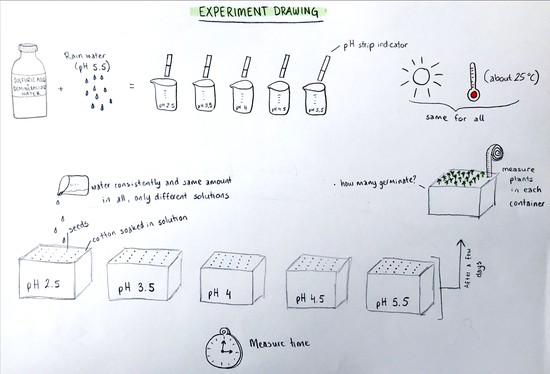 EXPERIMENT DRAWING
pH strip indicator
Rain water
(pH 5.5)
SULFURIC ACID
+
DEMINERALIZED
WATER
+
=
pH 2.5
pH 3.5
pH 4
pH 4.5
pH 5.5
(about 25°C)
same for all
water consistently and same amount
in all, only different solutions
how many germinate?
measure
plants
in each
container
seeds
cotton soaked in solution
pH 2.5
pH 3.5
pH 4
pH 4.5
pH 5.5
After a few
days
Measure time